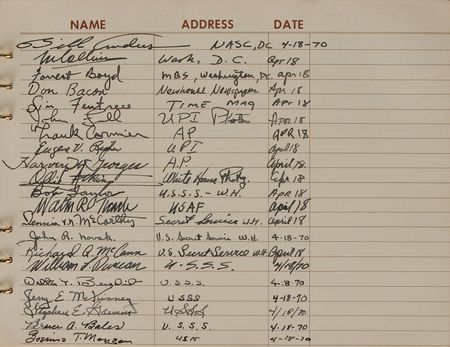 NAME ADDRESS DATE
Bill Anders NASC, DC 4-18-70
MCollins Wash, D.C. Apr 18
Forrest Boyd MBS, Washington, DC apr 18
Don Bacon Newhouse Newspapers Apr 18
Jim TIME MAG Apr 18
John Full UPI Photos Apr 18
Frank Cormier AP APR 18
Eugene V. Risher UPI April 18
Harvey Georges A.P. April 18.
Ollie Atkins White House Photog. Apr 18
Bob Taylor U.S.S.S. - W.H. APR 18
Walter R. USAF April 18
Dennis McCarthy Secret Service W.H. April 18
John R. Novak U.S. Secret Service W.H. 4-18-70
Richard A. McCann U.S. Secret Service W.H. April 18
William Duncan U.S.S.S. 4/18/70
U.S.S.S. 4-18-70
Jerry E. McKinney USSS 4-18-70
Stephen E. USSS 4/18/70
Bruce A. Bales U.S.S.S. 4-18-70
T. USN 4-18-70